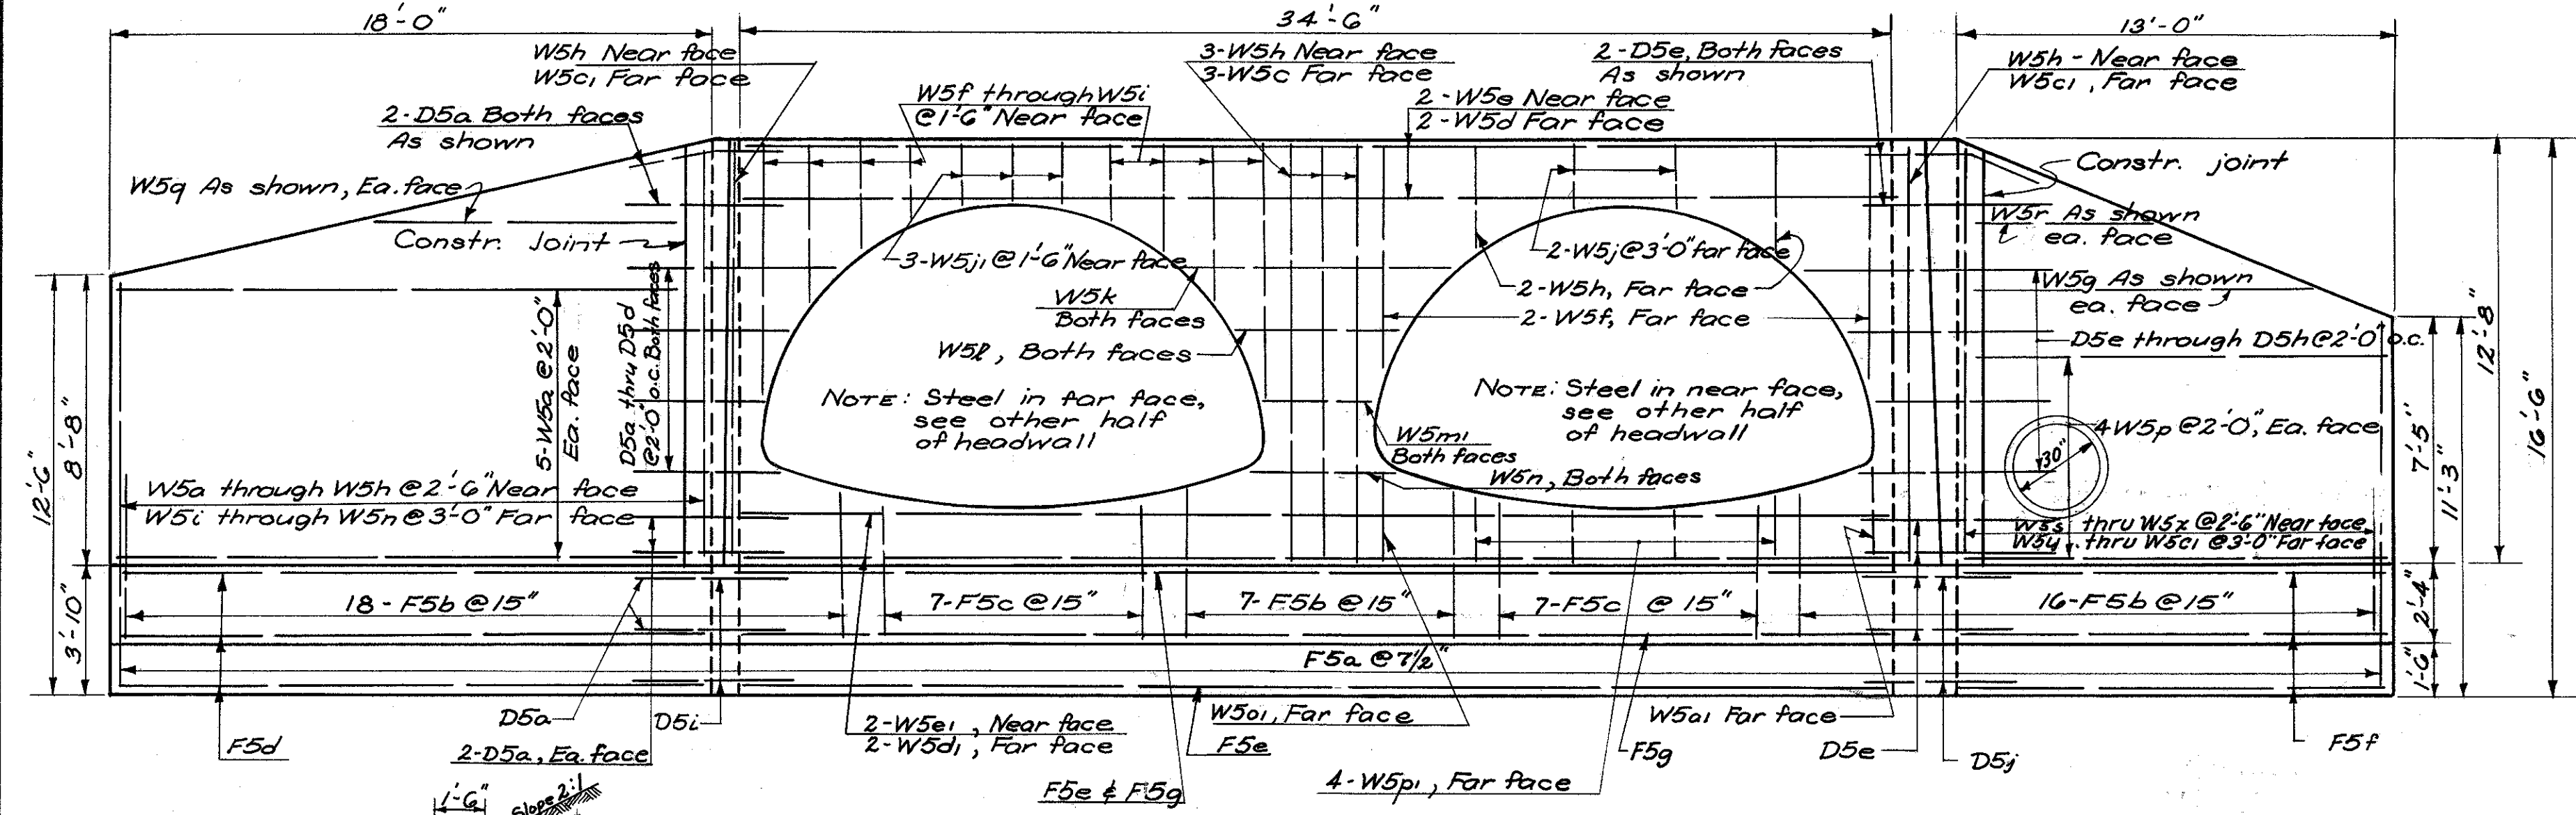 18'-0"
34'-6"
13'-0"
W5h Near face
W5c1, Far face
3-W5h Near face
3-W5c Far face
2-D5e, Both faces
As shown
W5h - Near face
W5c1, Far face
2-D5a Both faces
As shown
W5f through W5i
@1'-6" Near face
2-W5e Near face
2-W5d Far face
W5q As shown, Ea. face
Constr. Joint
Constr. joint
W5r As shown
ea. face
3-W5j1 @ 1'-6" Near face
2-W5j @ 3'-0" far face
W5k
Both faces
2-W5h, Far face
2-W5f, Far face
W5g As shown
ea. face
W5l, Both faces
D5e through D5h @ 2'-0" o.c.
5-W5a @ 2'-0"
Ea. face
D5a thru D5d
@2'-0" o.c. Both faces
NOTE: Steel in far face,
see other half
of headwall
NOTE: Steel in near face,
see other half
of headwall
W5m1
Both faces
W5n, Both faces
4W5p @ 2'-0", Ea. face
30"
12'-6"
8'-8"
3'-10"
12'-8"
16'-6"
7'-5"
11'-3"
2'-4"
1'-6"
W5a through W5h @ 2'-6" Near face
W5i through W5n @ 3'-0" Far face
W5s thru W5x @ 2'-6" Near face
W5y thru W5c1 @ 3'-0" Far face
18-F5b @ 15"
7-F5c @ 15"
7-F5b @ 15"
7-F5c @ 15"
16-F5b @ 15"
F5a @ 7 1/2"
D5a
D5i
2-W5e1, Near face
2-W5d1, Far face
W5o1, Far face
W5a1 Far face
F5d
2-D5a, Ea. face
F5e
F5g
D5e
D5j
F5f
F5e & F5g
4-W5p1, Far face
1'-6"
Slope 2:1